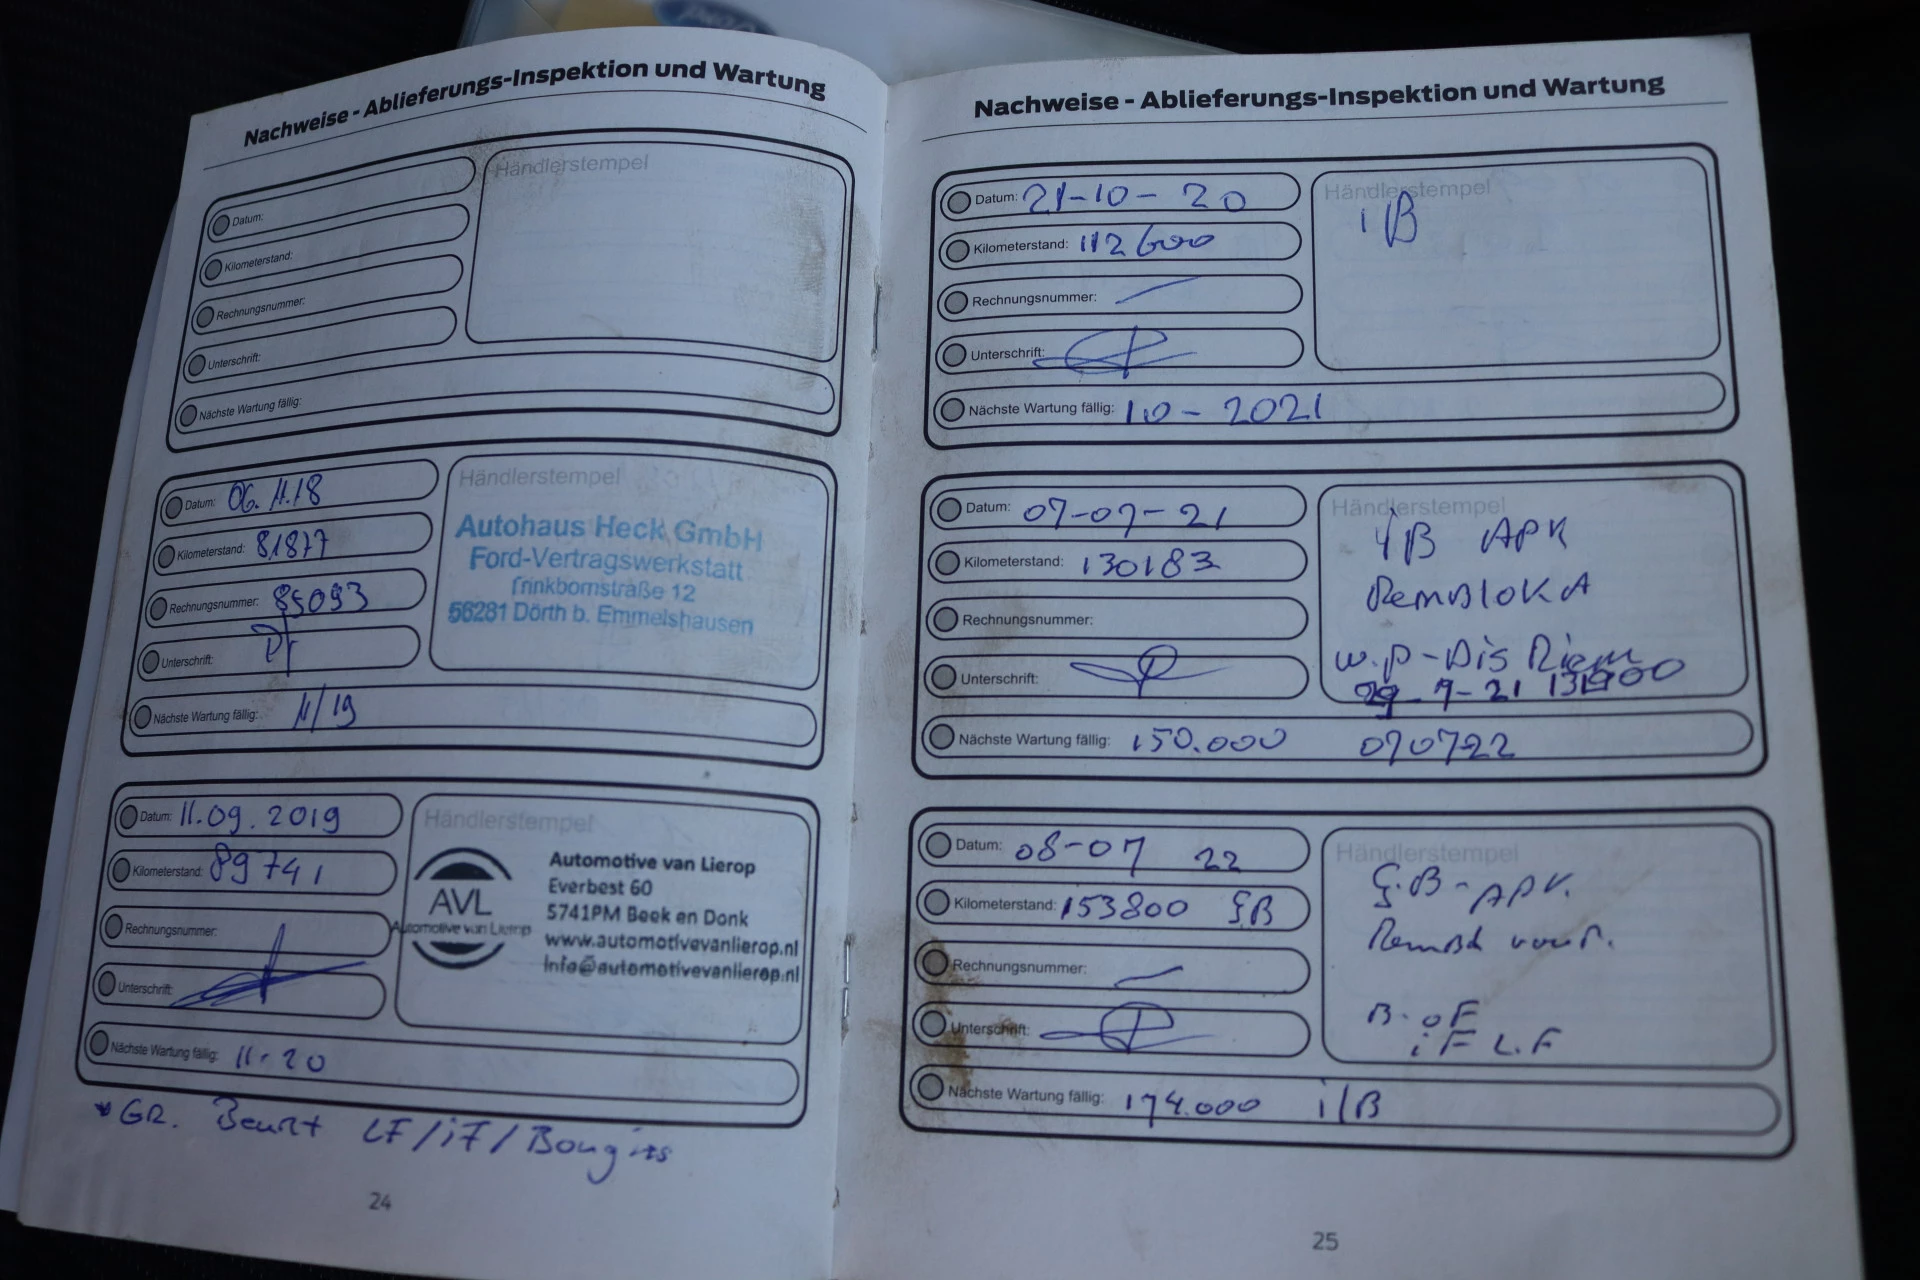 Nachweise - Ablieferungs-Inspektion und Wartung
Händlerstempel
Datum:
Kilometerstand:
Rechnungsnummer:
Unterschrift:
Nächste Wartung fällig:
Datum: 06.11.18
Kilometerstand: 81877
Rechnungsnummer: 85093
Unterschrift:
Nächste Wartung fällig: 11/19
Händlerstempel
Autohaus Heck GmbH
Ford-Vertragswerkstatt
Trinkbornstraße 12
56281 Dörth b. Emmelshausen
Datum: 11.09.2019
Kilometerstand: 89741
Rechnungsnummer:
Unterschrift:
Nächste Wartung fällig: 11-20
Händlerstempel
AVL
Automotive van Lierop
Automotive van Lierop
Everbest 60
5741PM Beek en Donk
www.automotivevanlierop.nl
Info@automotivevanlierop.nl
* GR. Beurt LF/iF/Bougies
24
Nachweise - Ablieferungs-Inspektion und Wartung
Datum: 21-10-20
Kilometerstand: 112600
Rechnungsnummer: —
Unterschrift:
Nächste Wartung fällig: 10-2021
Händlerstempel
Datum: 07-07-21
Kilometerstand: 130183
Rechnungsnummer:
Unterschrift:
Nächste Wartung fällig: 150.000 070722
Händlerstempel
APK
RemBlok A
w.p-Dis Riem
29-7-21
Datum: 08-07 22
Kilometerstand: 153800
Rechnungsnummer: —
Unterschrift:
Nächste Wartung fällig: 174.000 i/B
Händlerstempel
APK.
B. oF
iF L.F
25